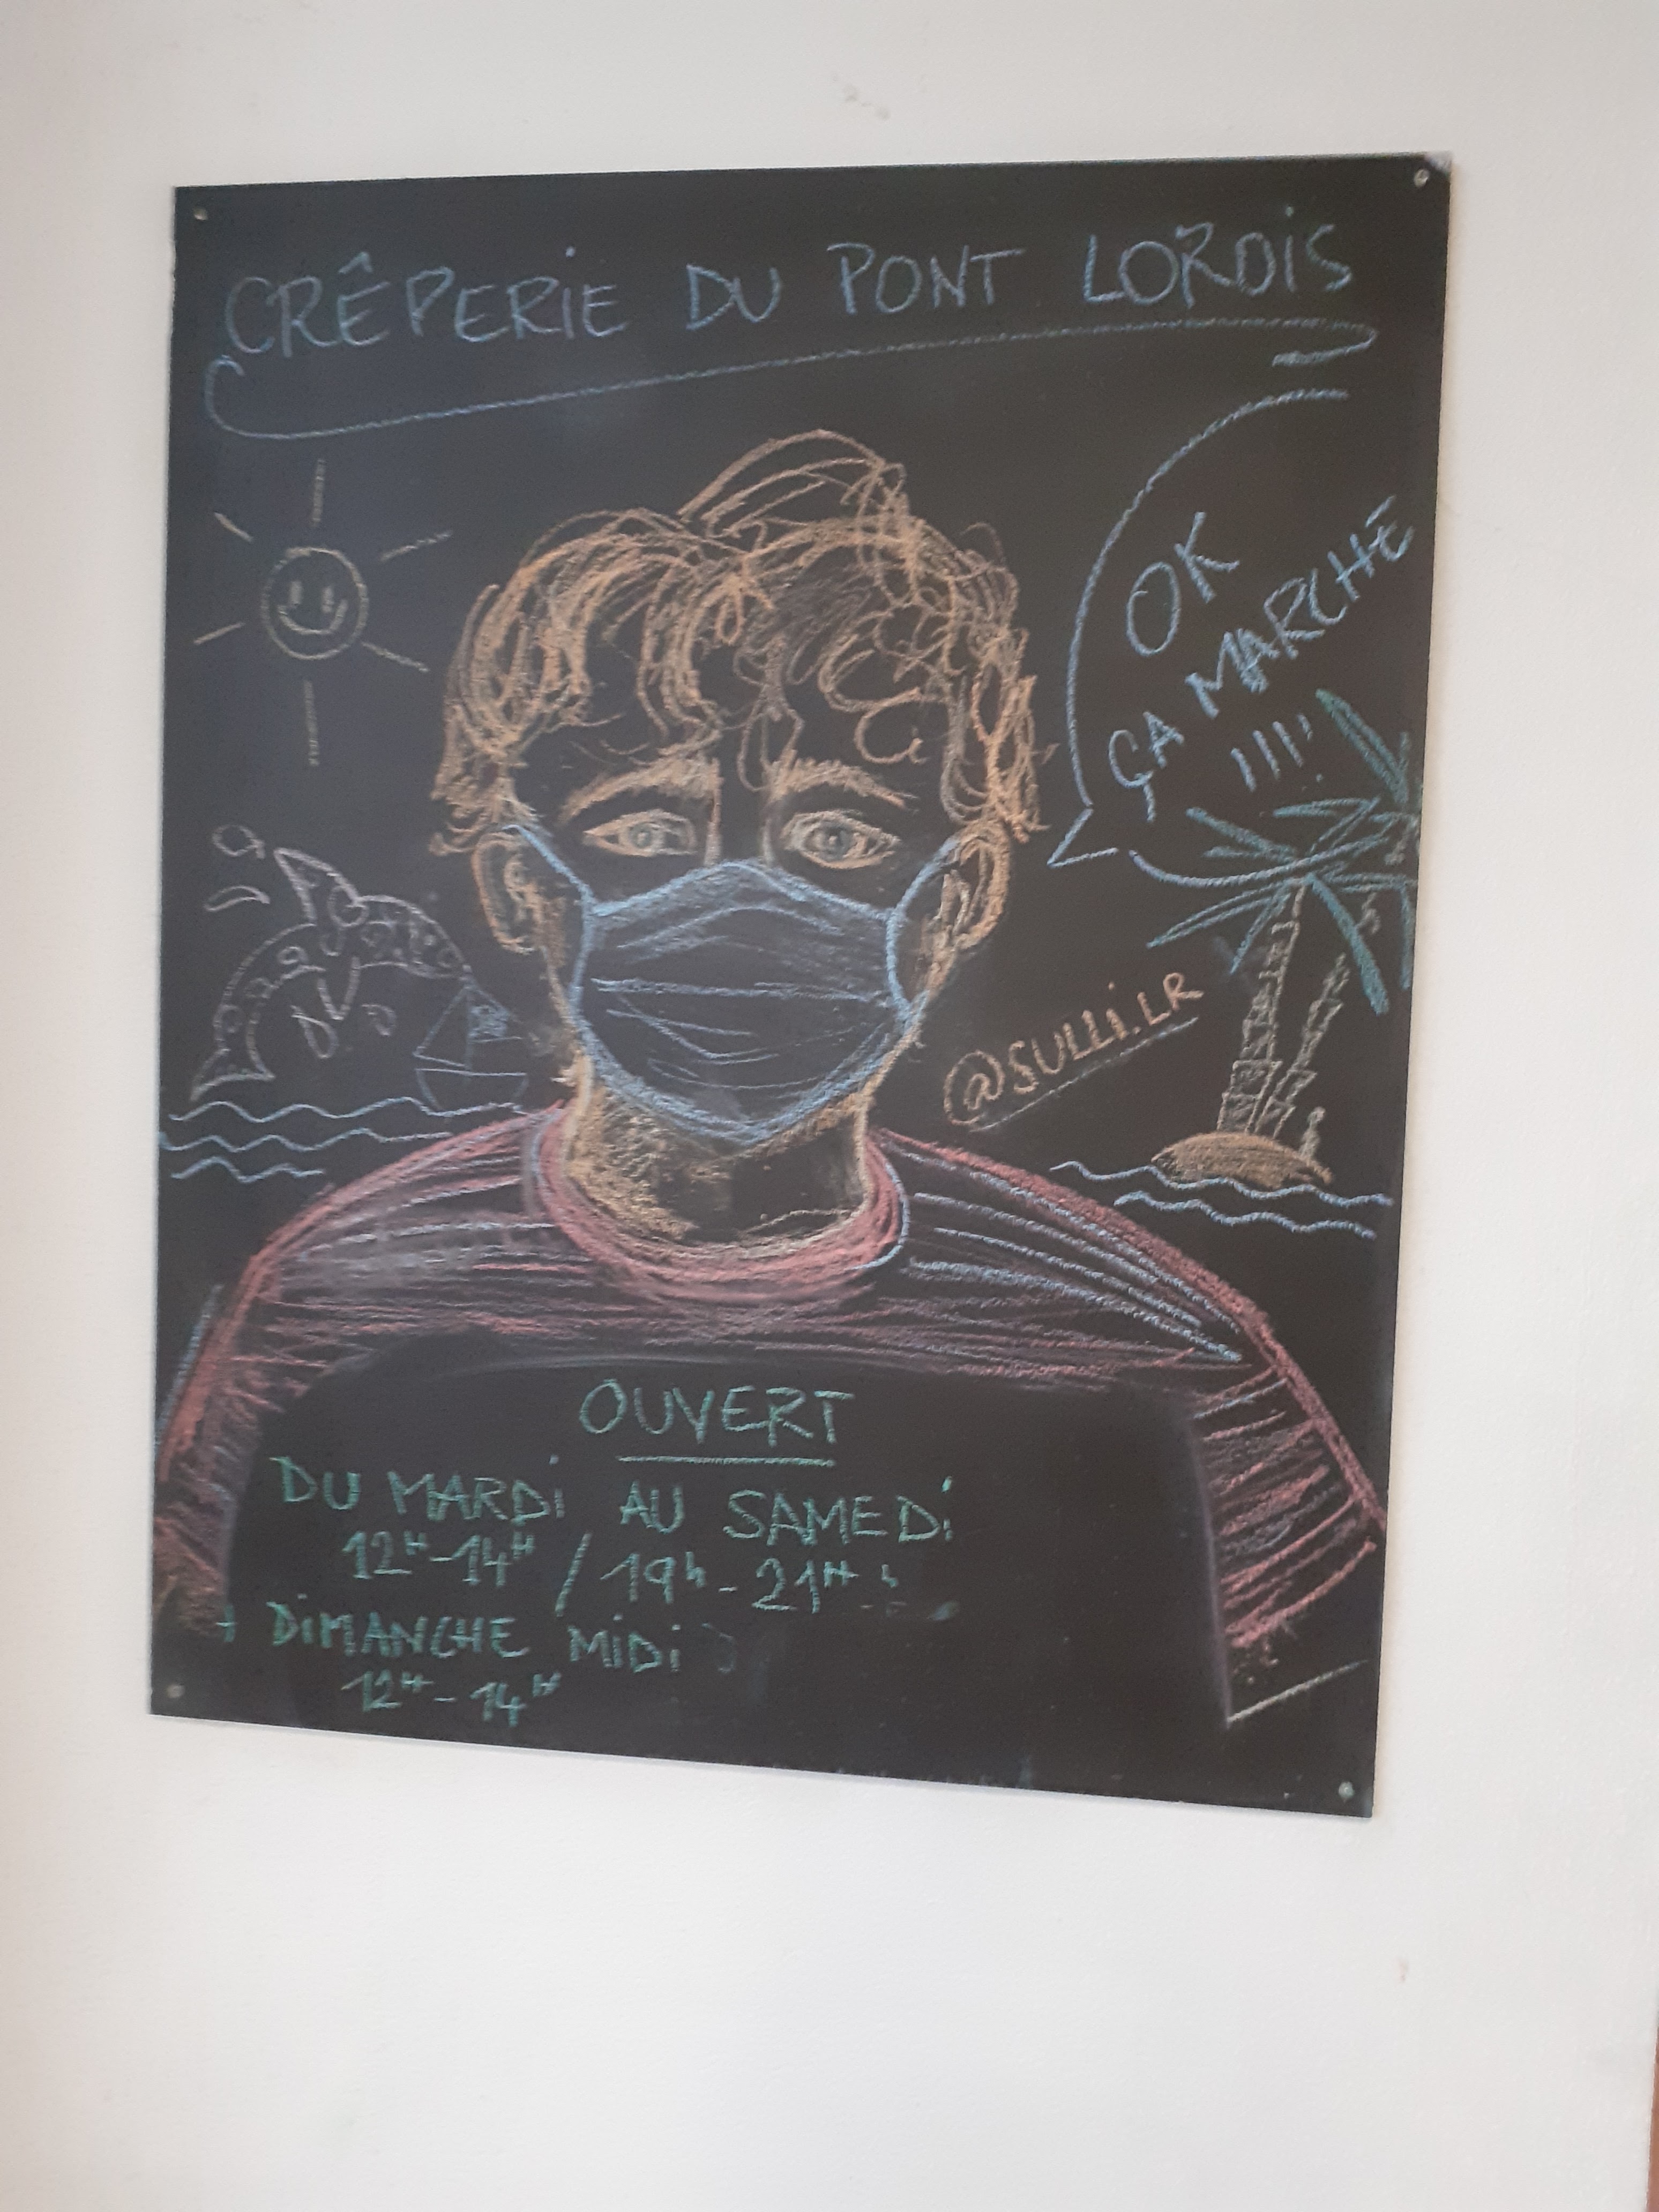 CRÊPERIE DU PONT LORDIS
OK
ÇA MARCHE
!!!!
@SULLI.LR
OUVERT
DU MARDI AU SAMEDI
12H-14H / 19h-21H
+ DIMANCHE MIDI
12H-14H